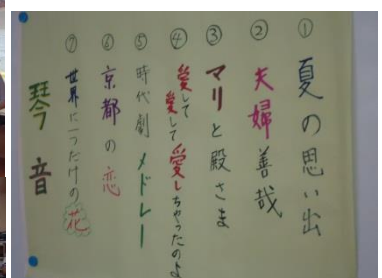 ①夏の思い出
②夫婦善哉
③マリと殿さま
④愛して愛して愛しちゃったのよ
⑤時代劇メドレー
⑥京都の恋
⑦世界に一つだけの花
琴音